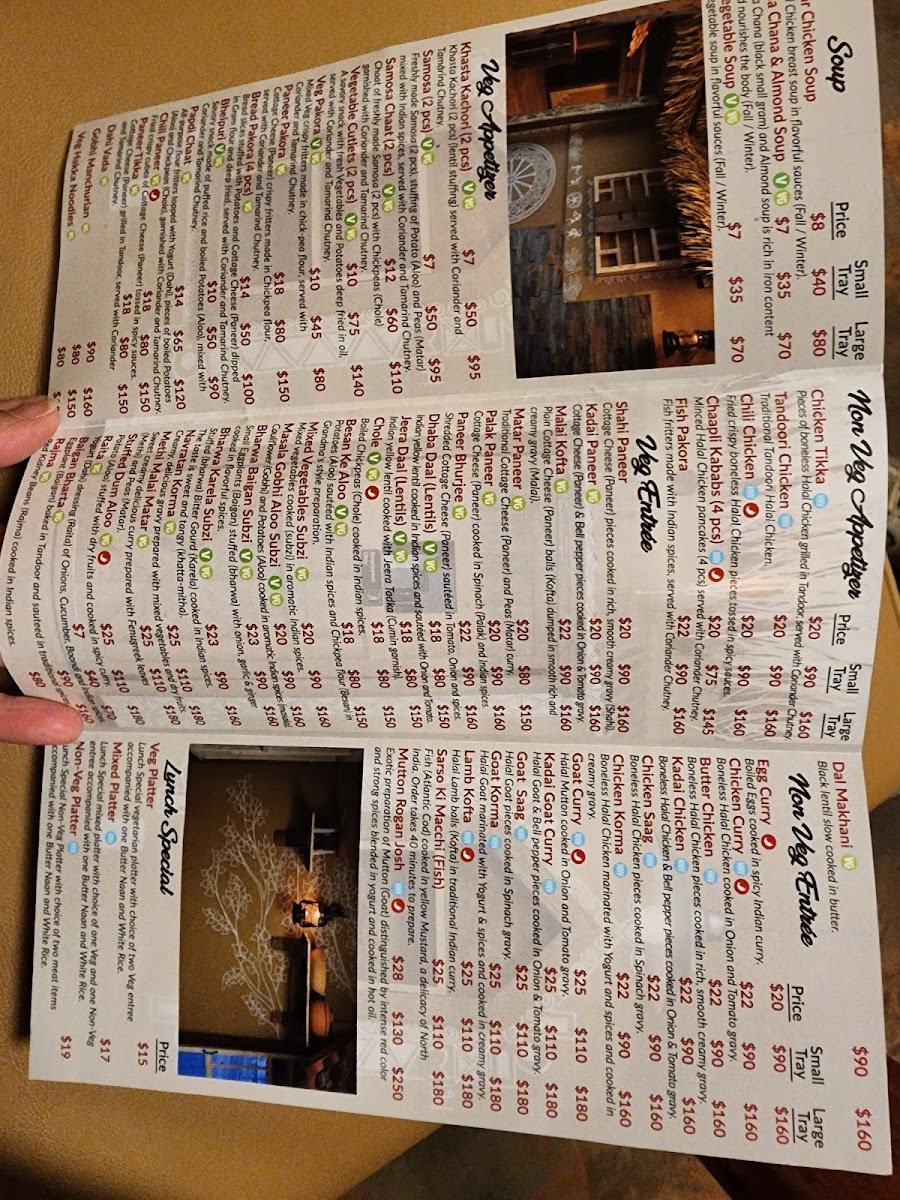 Soup
Price
Small Tray
Large Tray
Chicken Soup $8 $40 $80
Chicken breast soup in flavorful sauces (Fall / Winter).
Chana & Almond Soup V VG $7 $35 $70
Chana (black small gram) and Almond soup is rich in iron content
nourishes the body (Fall / Winter).
Vegetable Soup V VG $7 $35 $70
vegetable soup in flavorful sauces (Fall / Winter).
Veg Appetizer
Khasta Kachori (2 pcs) V VG $7 $50 $95
Khasta Kachori (2 pcs) (lentil stuffing) served with Coriander and
Tamarind Chutney.
Samosa (2 pcs) V VG $7 $50 $95
Freshly made Samosa (2 pcs), stuffing of Potato (Aloo) and Peas (Matar)
mixed with Indian spices, served with Coriander and Tamarind Chutney.
Samosa Chaat (2 pcs) V VG $12 $60 $110
Chaat of freshly made Samosa (2 pcs) with Chickpeas (Chole)
garnished with Coriander and Tamarind Chutney.
Vegetable Cutlets (2 pcs) V VG $10 $75 $140
A savory snack with fresh Vegetables and Potatoes deep fried in oil,
served with Coriander and Tamarind Chutney.
Veg Pakora V VG $10 $45 $80
Mixed Veg crispy fritters made in chick-pea flour, served with
Coriander and Tamarind Chutney.
Paneer Pakora VG $18 $80 $150
Cottage Cheese (Paneer) crispy fritters made in Chickpea flour,
served with Coriander and Tamarind Chutney.
Bread Pakora (4 pcs) VG $14 $50 $100
Bread slices stuffed with Potatoes and Cottage Cheese (Paneer) dipped
in Gram flour and deep fried, served with Coriander and Tamarind Chutney.
Bhelpuri V VG $10 $50 $90
Savory snack made of puffed rice and boiled Potatoes (Aloo), mixed with
Coriander and Tamarind Chutney.
Papdi Chaat VG $14 $65 $120
All-purpose flour fritters topped with Yogurt (Dahi), pieces of boiled Potatoes
(Aloo) and Chickpeas (Chole), garnished with Coriander and Tamarind Chutney.
Chili Paneer VG $18 $80 $150
Fried crispy cubes of Cottage Cheese (Paneer) tossed in spicy sauces.
Paneer Tikka VG $18 $80 $150
Cottage Cheese (Paneer) grilled in Tandoor, served with Coriander
and Tamarind Chutney.
Dahi Vada VG
Gobhi Manchurian VG $90 $160
Veg Hakka Noodles VG $80 $150
$80
Non Veg Appetizer
Price
Small Tray
Large Tray
Chicken Tikka $20 $90 $160
Pieces of boneless Halal Chicken grilled in Tandoor, served with Coriander Chutney
Tandoori Chicken $20 $90 $160
Traditional Tandoori Halal Chicken.
Chili Chicken $20 $90 $160
Fried crispy boneless Halal Chicken pieces tossed in spicy sauces.
Chaapli Kababs (4 pcs) $20 $75 $145
Minced Halal Chicken pancakes (4 pcs) served with Coriander Chutney.
Fish Pakora $22 $90 $160
Fish fritters made with Indian spices, served with Coriander Chutney.
Veg Entrée
Shahi Paneer $20 $90 $160
Cottage Cheese (Paneer) pieces cooked in rich, smooth creamy gravy (Shahi).
Kadai Paneer VG $20 $90 $160
Cottage Cheese (Paneer) & Bell pepper pieces cooked in Onion & Tomato gravy.
Malai Kofta VG $22 $90 $160
Plain Cottage Cheese (Paneer) balls (Kofta) dumped in smooth rich and
creamy gravy (Malai).
Matar Paneer VG $20 $80 $150
Traditional Cottage Cheese (Paneer) and Peas (Matar) curry.
Palak Paneer VG $20 $90 $160
Cottage Cheese (Paneer) cooked in Spinach (Palak) and Indian spices
Paneer Bhurjee VG $22 $90 $160
Shredded Cottage Cheese (Paneer) sautéed in Tomato, Onion and spices.
Dhaba Daal (Lentils) V VG $18 $80 $150
Indian yellow lentil cooked in Indian spices and sautéed with Onion and Tomato.
Jeera Daal (Lentils) V VG $18 $80 $150
Indian yellow lentil cooked with Jeera Tadka (Cumin garnish).
Chole V VG $18 $80 $150
Boiled Chickpeas (Chole) cooked in Indian spices.
Besan Ke Aloo V VG $18 $80 $150
Potatoes (Aloo) sautéed with Indian spices and Chickpea flour (Besan) in
Grandma's style preparation.
Mixed Vegetables Subzi V VG $20 $90 $160
Mixed vegetables cooked (subzi) in aromatic Indian spices.
Masala Gobhi Aloo Subzi V VG $20 $90 $160
Cauliflower (Gobhi) and Potatoes (Aloo) cooked in aromatic Indian spices (masala).
Bharwa Baigan Subzi V VG $23 $90 $160
Small Eggplants (Baigan) stuffed (bharwa) with onion, garlic & ginger
cooked in flavorful spices.
Bharwa Karela Subzi V VG $23 $90 $160
Stuffed (bharwa) Bitter Gourd (Karela) cooked in Indian spices.
The taste is sweet and tangy (khatta-mitha).
Navratan Korma VG $25 $110 $180
Creamy, delicious gravy prepared with mixed vegetables and dry fruits.
Methi Malai Matar VG $25 $110 $180
Sweet creamy and delicious curry prepared with Fenugreek leaves
(Methi) and Peas (Matar).
Stuffed Dum Aloo VG $25 $110 $180
Potato (Aloo) stuffed with dry fruits and cooked in spicy curry.
Raita VG $7 $40 $70
Yogurt (Dahi) dressing (Raita) of Onions, Cucumber, Boondi and
Baigan Bharta V VG $90 $160
Eggplant (Baigan) baked in Tandoor and sautéed in traditional
Rajma $80
Red Kidney Beans (Rajma) cooked in Indian spices.
Dal Makhani VG $90 $160
Black lentil slow cooked in butter.
Non Veg Entrée
Price
Small Tray
Large Tray
Egg Curry $20 $90 $160
Boiled Eggs cooked in spicy Indian curry.
Chicken Curry $22 $90 $160
Chicken cooked in Onion and Tomato gravy.
Butter Chicken $22 $90 $160
Boneless Halal Chicken pieces cooked in rich, smooth creamy gravy.
Kadai Chicken $22 $90 $160
Boneless Halal Chicken & Bell pepper pieces cooked in Onion & Tomato gravy.
Chicken Saag $22 $90 $160
Boneless Halal Chicken pieces cooked in Spinach gravy.
Chicken Korma $22 $90 $160
Boneless Halal Chicken marinated with Yogurt and spices and cooked in
creamy gravy.
Goat Curry $25 $110 $180
Halal Mutton cooked in Onion and Tomato gravy.
Kadai Goat Curry $25 $110 $180
Halal Goat & Bell pepper pieces cooked in Onion & Tomato gravy.
Goat Saag $25 $110 $180
Halal Goat pieces cooked in Spinach gravy.
Goat Korma $25 $110 $180
Halal Goat marinated with Yogurt & spices and cooked in creamy gravy.
Lamb Kofta $25 $110 $180
Halal Lamb balls (Kofta) in traditional Indian curry.
Sarso Ki Macchi (Fish) $25 $110 $180
Fish (Atlantic Cod) cooked in yellow Mustard, a delicacy of North
India. Order takes 40 minutes to prepare.
Mutton Rogan Josh $28 $130 $250
Exotic preparation of Mutton (Goat) distinguished by intense red color
and strong spices blended in yogurt and cooked in hot oil.
Lunch Special
Price
Veg Platter $15
Lunch Special vegetarian platter with choice of two Veg entree
accompanied with one Butter Naan and White Rice.
Mixed Platter $17
Lunch Special mixed platter with choice of one Veg and one Non-Veg
entree accompanied with one Butter Naan and White Rice.
Non-Veg Platter $19
Lunch Special Non-Veg Platter with choice of two meat items
accompanied with one Butter Naan and White Rice.